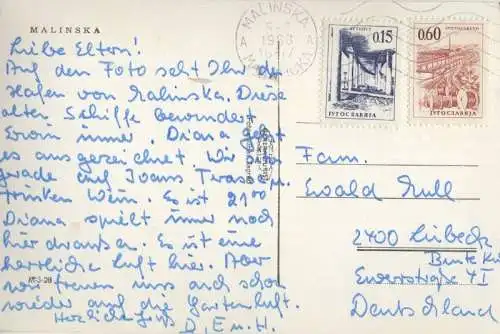 MALINSKA
Liebe Eltern!
Auf dem Foto seht Ihr den
Hafen von Malinska. Diese
alten Schiffe bewundert
Erwin immer. Diana geht
es ausgezeichnet. Wir
grade auf Ivans Terasse u.
trinken Wein. Es ist 21⁰⁰
Diana spielt immer noch
hier draußen. Es ist eine
herrliche Luft hier. Aber
wir freuen uns auch schon
wieder auf die Gartenluft.
Herzliche Grüße D, E u. H.
MALINSKA
1968
0.15
ЈУГОСЛАВИЈА
0.60
JUGOSLAVIJA
Fam.
Ewald
2400 Lübeck
Deutschland